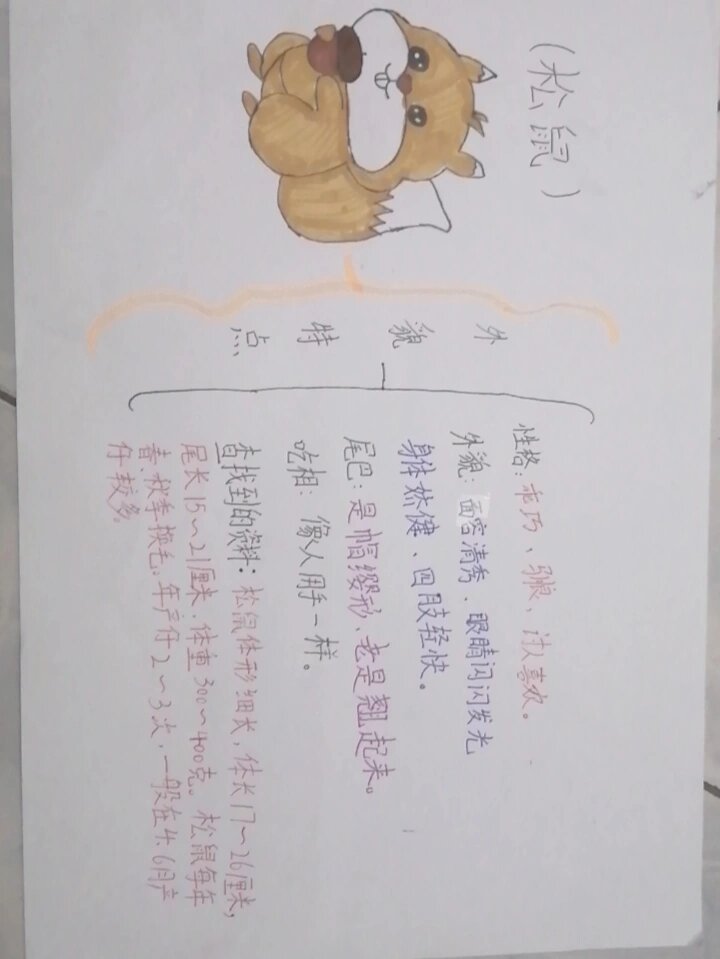 （松鼠）
外貌特点
性格：乖巧、驯良、讨人喜欢。
外貌：面容清秀、眼睛闪闪发光
身体娇健、四肢轻快。
尾巴：是帽缨形、老是翘起来。
吃相：像人用手一样。
查找到的资料：松鼠体形细长，体长17～26厘米，
尾长15～21厘米，体重300～400克。松鼠每年
春、秋季换毛。年产仔2～3次，一般在4.6月产
仔较多。